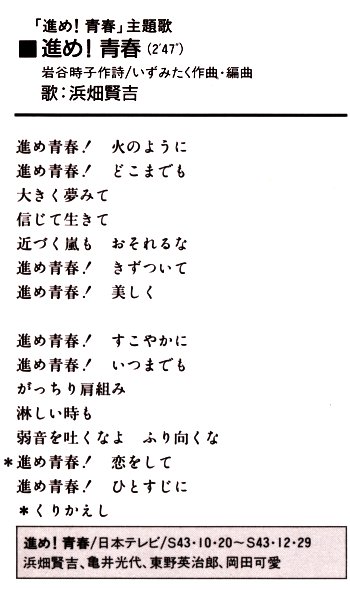 「進め！青春」主題歌
■進め！青春(2′47″)
岩谷時子作詩/いずみたく作曲・編曲
歌：浜畑賢吉
進め青春！ 火のように
進め青春！ どこまでも
大きく夢みて
信じて生きて
近づく嵐も おそれるな
進め青春！ きずついて
進め青春！ 美しく
進め青春！ すこやかに
進め青春！ いつまでも
がっちり肩組み
淋しい時も
弱音を吐くなよ ふり向くな
*進め青春！ 恋をして
進め青春！ ひとすじに
*くりかえし
進め！青春/日本テレビ/S43・10・20〜S43・12・29
浜畑賢吉、亀井光代、東野英治郎、岡田可愛